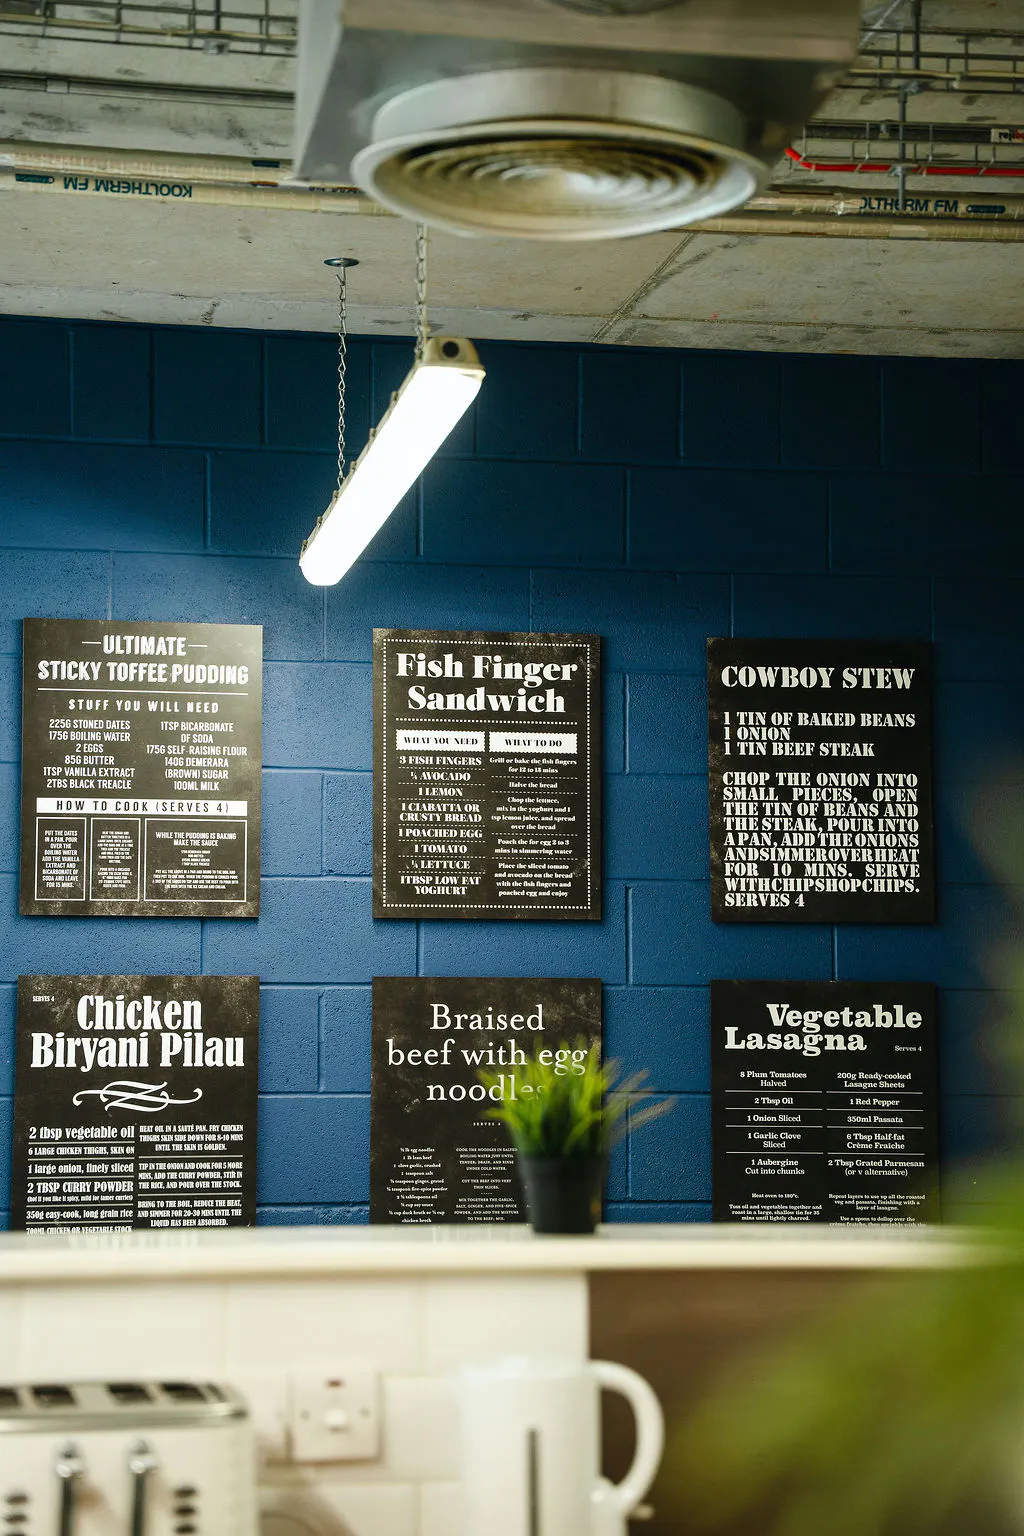 KOOLTHERM FM
OLTHERM FM
ULTIMATE
STICKY TOFFEE PUDDING
STUFF YOU WILL NEED
225G STONED DATES
175G BOILING WATER
2 EGGS
85G BUTTER
1TSP VANILLA EXTRACT
2TBS BLACK TREACLE
1TSP BICARBONATE
OF SODA
175G SELF-RAISING FLOUR
140G DEMERARA
(BROWN) SUGAR
100ML MILK
HOW TO COOK (SERVES 4)
PUT THE DATES
IN A PAN, POUR
OVER THE
BOILING WATER
ADD THE VANILLA
EXTRACT AND
BICARBONATE OF
SODA AND LEAVE
FOR 15 MINS.
WHILE THE PUDDING IS BAKING
MAKE THE SAUCE
Fish Finger
Sandwich
WHAT YOU NEED
3 FISH FINGERS
¼ AVOCADO
1 LEMON
1 CIABATTA OR
CRUSTY BREAD
1 POACHED EGG
1 TOMATO
¼ LETTUCE
1TBSP LOW FAT
YOGHURT
WHAT TO DO
Grill or bake the fish fingers
for 12 to 15 mins
Halve the bread
Chop the lettuce,
mix in the yoghurt and 1
tsp lemon juice, and spread
over the bread
Poach the egg 2 to 3
mins in simmering water
Place the sliced tomato
and avocado on the bread
with the fish fingers and
poached egg and enjoy
COWBOY STEW
1 TIN OF BAKED BEANS
1 ONION
1 TIN BEEF STEAK
CHOP THE ONION INTO
SMALL PIECES, OPEN
THE TIN OF BEANS AND
THE STEAK, POUR INTO
A PAN, ADD THE ONIONS
AND SIMMER OVER HEAT
FOR 10 MINS. SERVE
WITH CHIP SHOP CHIPS.
SERVES 4
SERVES 4
Chicken
Biryani Pilau
2 tbsp vegetable oil
6 LARGE CHICKEN THIGHS, SKIN ON
1 large onion, finely sliced
2 TBSP CURRY POWDER
(hot if you like it spicy, mild for tamer curries)
350g easy-cook, long grain rice
700ML CHICKEN OR VEGETABLE STOCK
HEAT OIL IN A SAUTÉ PAN. FRY CHICKEN
THIGHS SKIN SIDE DOWN FOR 8-10 MINS
UNTIL THE SKIN IS GOLDEN.
TIP IN THE ONION AND COOK FOR 5 MORE
MINS, ADD THE CURRY POWDER, STIR IN
THE RICE, AND POUR OVER THE STOCK.
BRING TO THE BOIL, REDUCE THE HEAT,
AND SIMMER FOR 20-30 MINS UNTIL THE
LIQUID HAS BEEN ABSORBED.
Braised
beef with egg
noodles
SERVES 4
¾ lb egg noodles
1 lb lean beef
1 clove garlic, crushed
1 teaspoon salt
COOK THE NOODLES IN SALTED
BOILING WATER JUST UNTIL
TENDER; DRAIN, AND RINSE
UNDER COLD WATER.
CUT THE BEEF INTO VERY
THIN SLICES.
MIX TOGETHER THE GARLIC,
SALT, GINGER, AND FIVE-SPICE
POWDER, AND ADD THE MIXTURE
TO THE BEEF; MIX.
Vegetable
Lasagna
Serves 4
8 Plum Tomatoes
Halved
2 Tbsp Oil
1 Onion Sliced
1 Garlic Clove
Sliced
1 Aubergine
Cut into chunks
200g Ready-cooked
Lasagne Sheets
1 Red Pepper
350ml Passata
6 Tbsp Half-fat
Crème Fraîche
2 Tbsp Grated Parmesan
(or v alternative)
Heat oven to 180°c.
Toss oil and vegetables together and
roast in a large, shallow tin for 35
mins until lightly charred.
Repeat layers to use up all the roasted
veg and passata, finishing with a
layer of lasagne.
Use a spoon to dollop over the